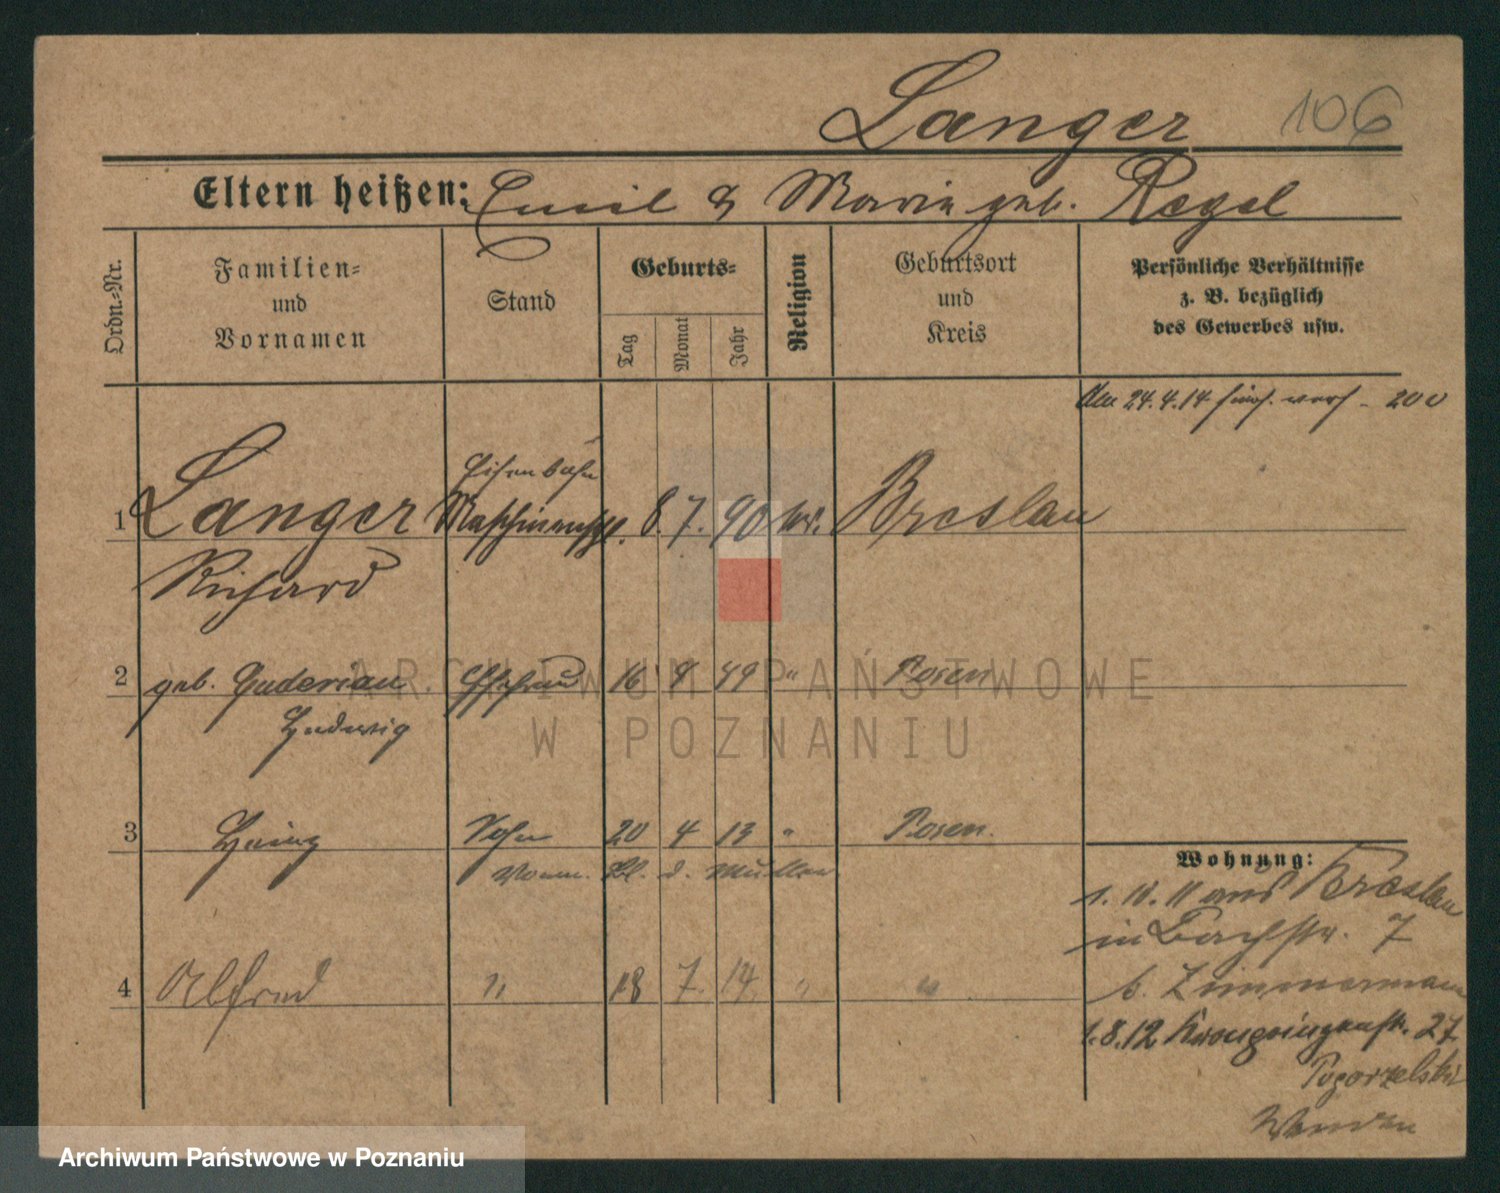 Langer 106
Eltern heißen: Emil & Marie geb. Regel
Ordn.-Nr.
Familien-
und
Vornamen
Stand
Geburts-
Tag
Monat
Jahr
Religion
Geburtsort
und
Kreis
Persönliche Verhältnisse
z. B. bezüglich
des Gewerbes usw.
24.4.14 200
Eisenbahn
1 Langer 8. 7. 90 Breslau
Richard
2 geb. Guderian Ehefrau 16 4 89 " Posen
Hedwig
3 Heinz Sohn 20 4 13 " Posen.
4 Alfred " 18 7. 14 " "
Wohnung:
1. 10. 11 aus Breslau
in Bachstr. 7
b. Zimmermann
1.8.12 Kronprinzenstr. 27
Pogorzelski
Wenden
ARCHIWUM PAŃSTWOWE
W POZNANIU
Archiwum Państwowe w Poznaniu